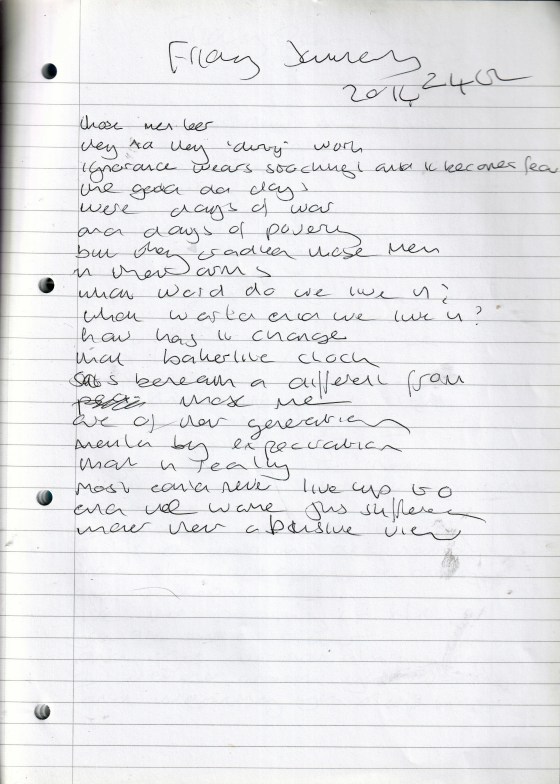 Friday January
2014 24th
those men
they did they 'dirty' work
ignorance wears and it becomes fear
the good old days
were days of war
and days of poverty
but they cradled those men
in their arms
what world do we live in?
what world and we live in?
how has it change
that bakerlite clock
sits beneath a different from
those me
are of their generation
by expectation
that in reality
most could never live up to
and women suffered
under their abusive view